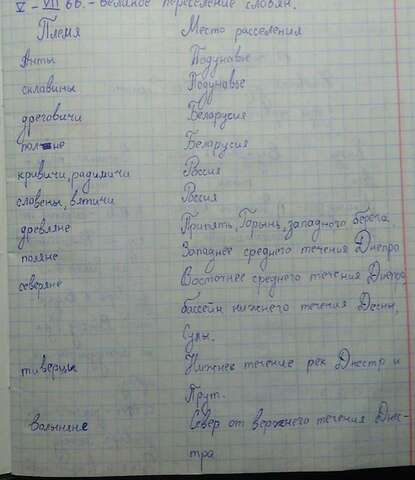 V - VII вв. - Великое переселение славян.
Племя Место расселения
Анты Подунавье
склавины Подунавье
дреговичи Беларусия
поляне Беларусия
кривичи, радимичи Россия
словены, вятичи Россия
древляне Припять, Горынь, западного берега.
поляне Западнее среднего течения Днепра
северяне Восточнее среднего течения Днепра,
бассейн нижнего течения Десны,
Сулы.
тиверцы Нижнее течение рек Днестр и
Прут.
Волыняне Север от верхнего течения Днес-
тра